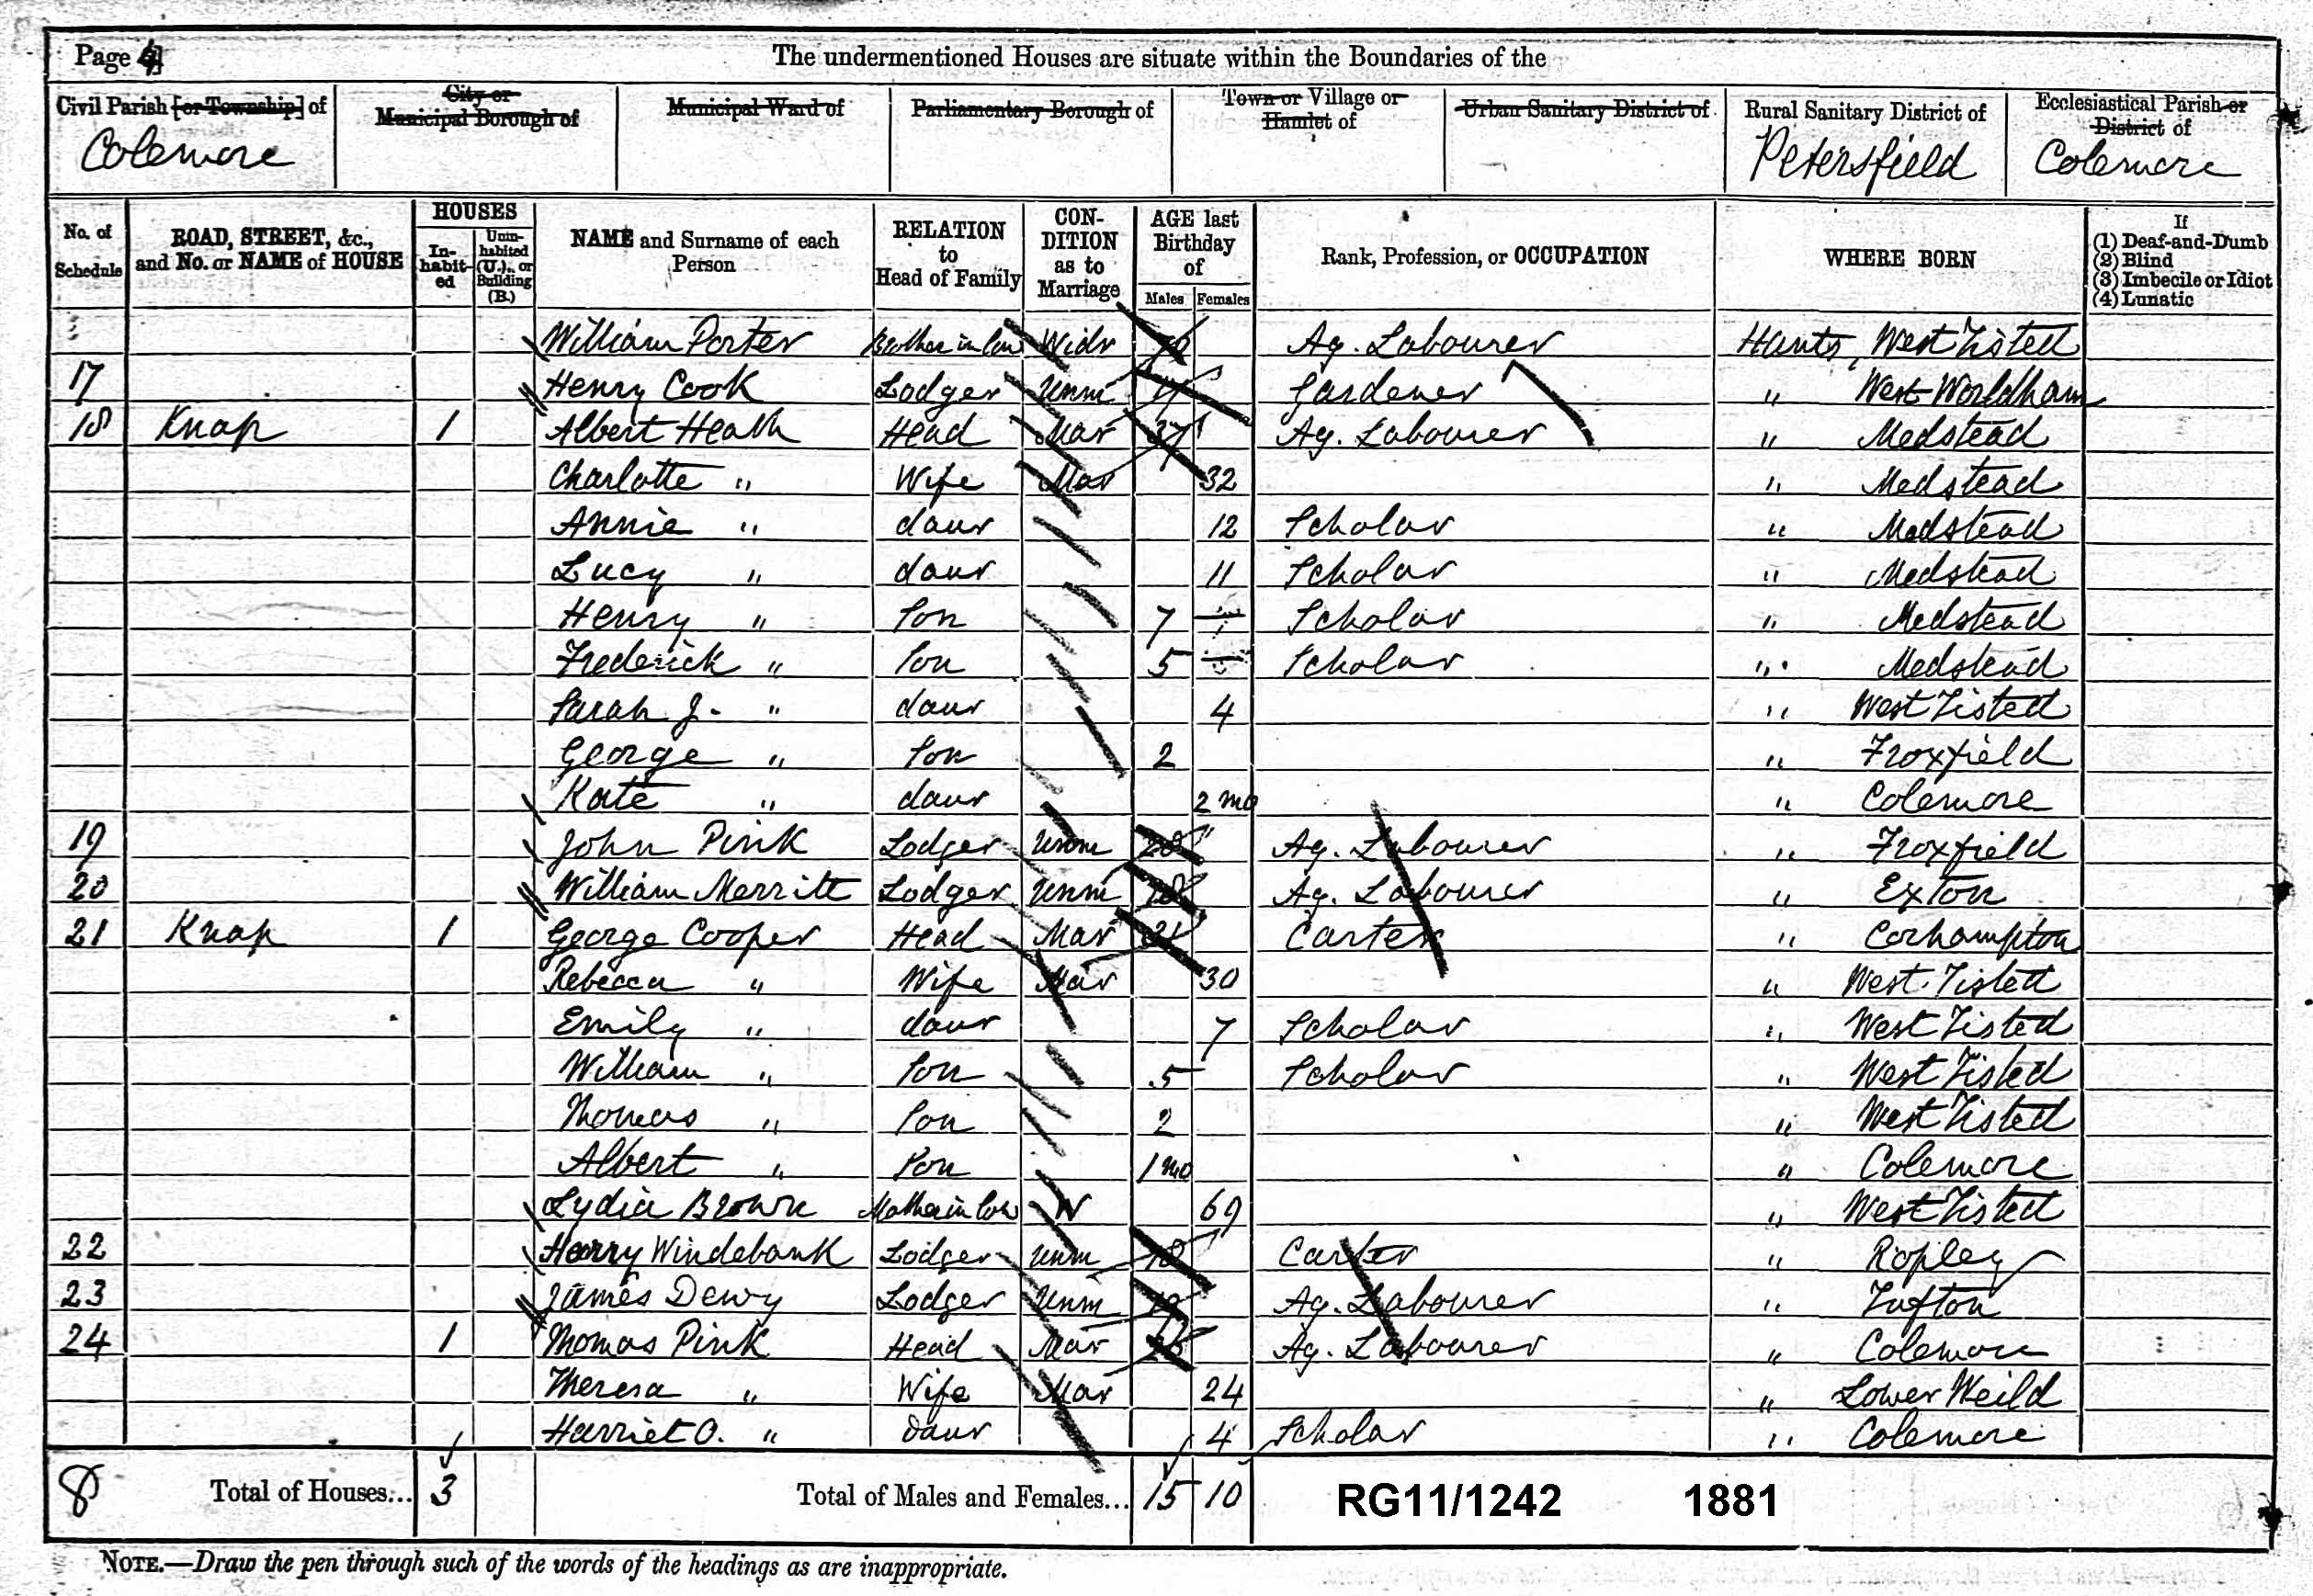 Page 4]
The undermentioned Houses are situate within the Boundaries of the
Civil Parish [or Township] of
Colemore
City or
Municipal Borough of
Municipal Ward of
Parliamentary Borough of
Town or Village or
Hamlet of
Urban Sanitary District of
Rural Sanitary District of
Petersfield
Ecclesiastical Parish or
District of
Colemore
No. of Schedule
ROAD, STREET, &c., and No. or NAME of HOUSE
HOUSES
In-habit-ed
Unin-habited (U.), or Building (B.)
NAME and Surname of each Person
RELATION to Head of Family
CON-DITION as to Marriage
AGE last Birthday of
Males Females
Rank, Profession, or OCCUPATION
WHERE BORN
If
(1) Deaf-and-Dumb
(2) Blind
(3) Imbecile or Idiot
(4) Lunatic
William Porter Brother in law Widr Ag. Labourer Hants, West Tisted
17 Henry Cook Lodger Unm Gardener " West Worldham
18 Knap 1 Albert Heath Head Mar 37 Ag. Labourer " Medstead
Charlotte " Wife Mar 32 " Medstead
Annie " daur 12 Scholar " Medstead
Lucy " daur 11 Scholar " Medstead
Henry " Son 7 Scholar " Medstead
Frederick " Son 5 Scholar " Medstead
Sarah J. " daur 4 " West Tisted
George " Son 2 " Froxfield
Kate " daur 2 mo " Colemore
19 John Pink Lodger Unm Ag. Labourer " Froxfield
20 William Merritt Lodger Unm Ag. Labourer " Exton
21 Knap 1 George Cooper Head Mar Carter " Corhampton
Rebecca " Wife Mar 30 " West Tisted
Emily " daur 7 Scholar " West Tisted
William " Son 5 Scholar " West Tisted
Thomas " Son 2 " West Tisted
Albert " Son 1 mo " Colemore
Lydia Brown Mother in law W 69 " West Tisted
22 Harry Windebank Lodger Unm 18 Carter " Ropley
23 James Dewy Lodger Unm Ag. Labourer " Tufton
24 1 Thomas Pink Head Mar Ag. Labourer " Colemore
Theresa " Wife Mar 24 " Lower Weild
Harriet O. " daur 4 Scholar " Colemore
8 Total of Houses... 3 Total of Males and Females... 15 10 RG11/1242 1881
NOTE.—Draw the pen through such of the words of the headings as are inappropriate.